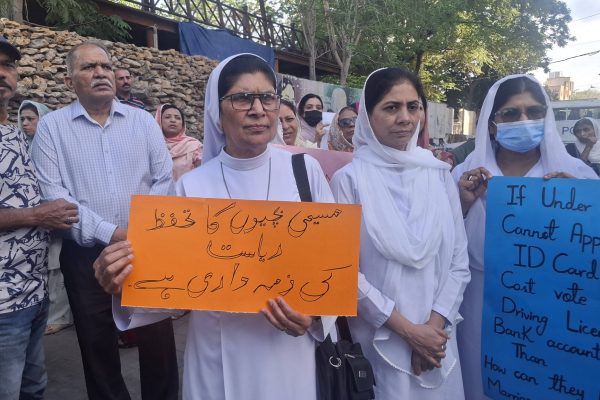 مسیحی بچیوں کا تحفظ
ریاست
کی ذمہ داری ہے۔
If Under
Cannot App
ID Card
Cast vote
Driving Lice
Bank account
Than
How can they